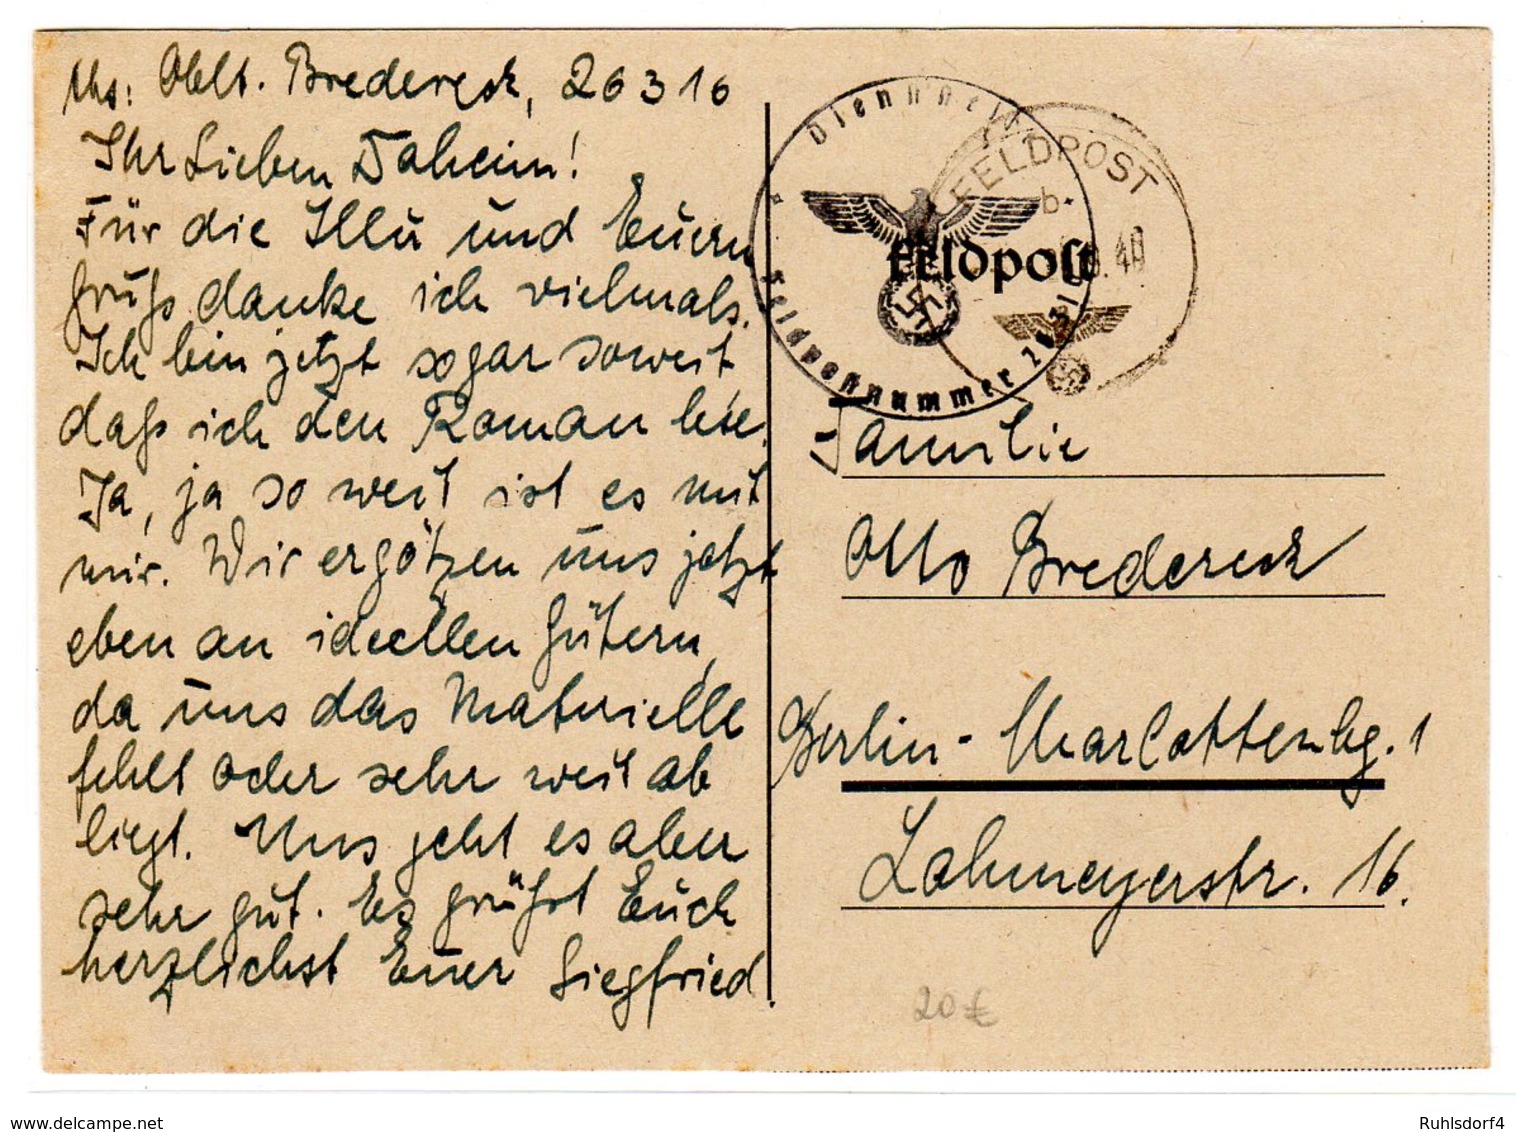 Abs: Oblt. Bredereck, 26316
Ihr Lieben Daheim!
Für die Illu und Euern
Gruß danke ich vielmals.
Ich bin jetzt sogar soweit
daß ich den Roman lese.
Ja, ja so weit ist es mit
mir. Wir ergötzen uns jetzt
eben an ideellen Gütern,
da uns das Materielle
fehlt oder sehr weit ab
liegt. Uns geht es aber
sehr gut. Es grüßt Euch
herzlichst Euer Siegfried.
Feldpostnummer
FELDPOST
b
40
Feldpost
Familie
Otto Bredereck
Berlin-Charlottenbg. 1
Lohmeyerstr. 16.
20 €
www.delcampe.net
Ruhlsdorf4